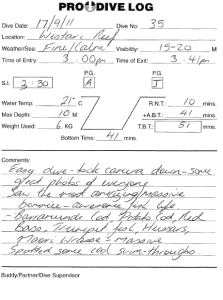 PRO DIVE LOG
Dive Date: 17/9/11 Dive No: 35
Location: Wistari Reef
Weather/Sea: Fine/Calm Visibility: 15-20 M
Time of Entry: 3:00pm Time of Exit: 3:41pm
P.G. P.G.
S.I. 2:30 A J
Water Temp: 21°C R.N.T. 10 mins.
Max Depth: 10 M +A.B.T. 41 mins.
Weight Used: 6 KG T.B.T. 51 mins.
Bottom Time: 41 mins.
Comments:
Easy dive - took camera down - some
great photos of everyone
Saw the most amazing/massive
bommie - awesome fish life
- Barramundi Cod, Potato Cod, Red
Bass, Trumpet fish,
Maori Wrasse - Massive
Spotted some cool swim-throughs.
Buddy/Partner/Dive Supervisor